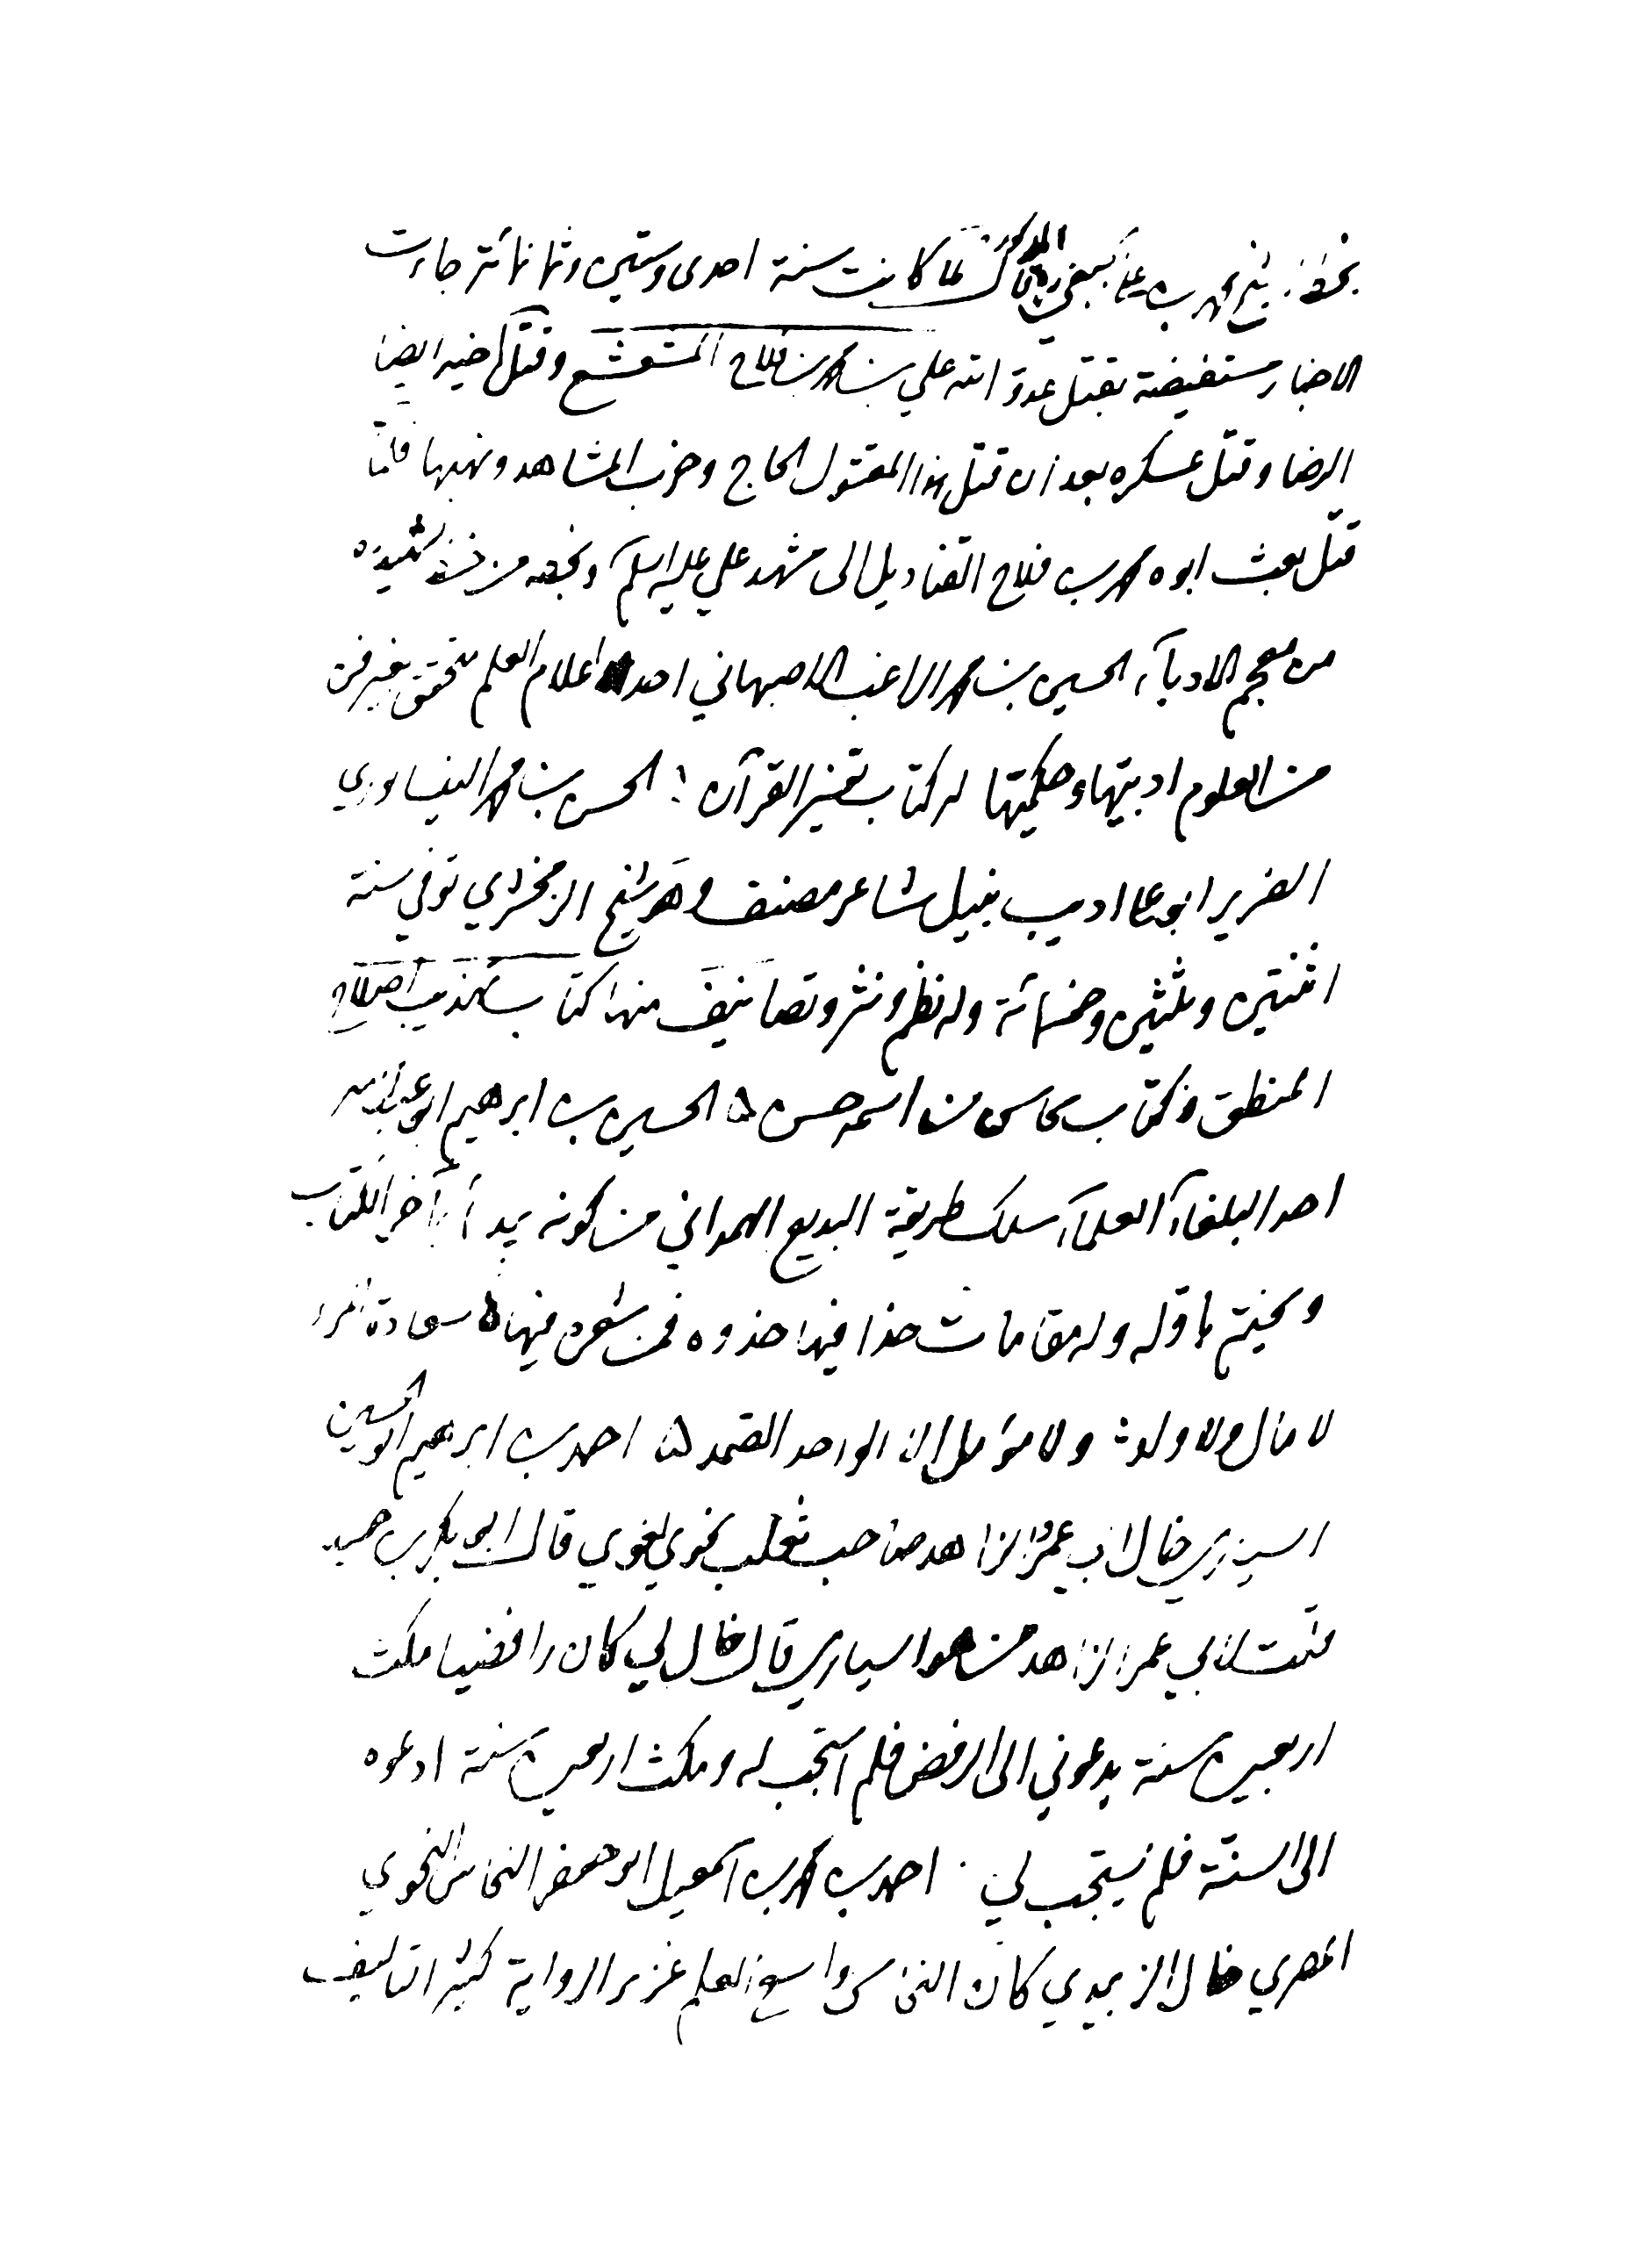 بخط الشيخ محمد بن علي الجبعي المذكور لما كانت سنة احدى وستين وثمانمائة جاءت
الاخبار مستفيضة بقتل عدو الله علي بن محمد بن فلاح المشعشع وقتل اخيه ايضا
الرضا وقتل عسكره بعد ان قتل هذا المقتول الحاج وخرب المشاهد ونهبها فلما
قتل بعث ابوه محمد بن فلاح القناديل الى مشهد علي عليه السلم وبخطه من
من معجم الادبآء الحسين بن محمد الراغب الاصبهاني احد اعلام العلم متحقق بغير فن
من العلوم ادبيتها وحكميتها له كتاب تفسير القرآن الحسن بن محمد النيسابوري
الضرير ابو علي اديب نبيل شاعر مصنف وهو شيخ الزمخشري توفي سنة
اثنتين وثلثين وخمسمائة وله نظم ونثر وتصانيف منها كتاب تهذيب اصلاح
المنطق وكتاب محاسن من اسمه حسن ه الحسين بن ابرهيم ابو عبدالله
احد البلغآء العلمآء سلك طريقة البديع الهمداني من كونه يبدأ بآخر الكتاب
ويختم باوله وله مقامات حذا فيها حذوه فمن شعره فيها سعادة المرء
لا مال ولا ولد ولا مؤمل الا الواحد الصمد ه احمد بن ابرهيم ابو الحسين
السياري خال ابي عمر الزاهد صاحب ثعلب نحوي لغوي قال ابو بكر بن حميد
قلت لابي عمر الزاهد من هو السياري قال خال لي كان رافضيا مكث
اربعين سنة يدعوني الى الرفض فلم استجب له ومكثت اربعين سنة ادعوه
الى السنة فلم يستجب لي . احمد بن محمد بن اسمعيل ابو جعفر النحاس النحوي
المصري قال الزبيدي كان النحاس واسع العلم غزير الرواية كثير التاليف